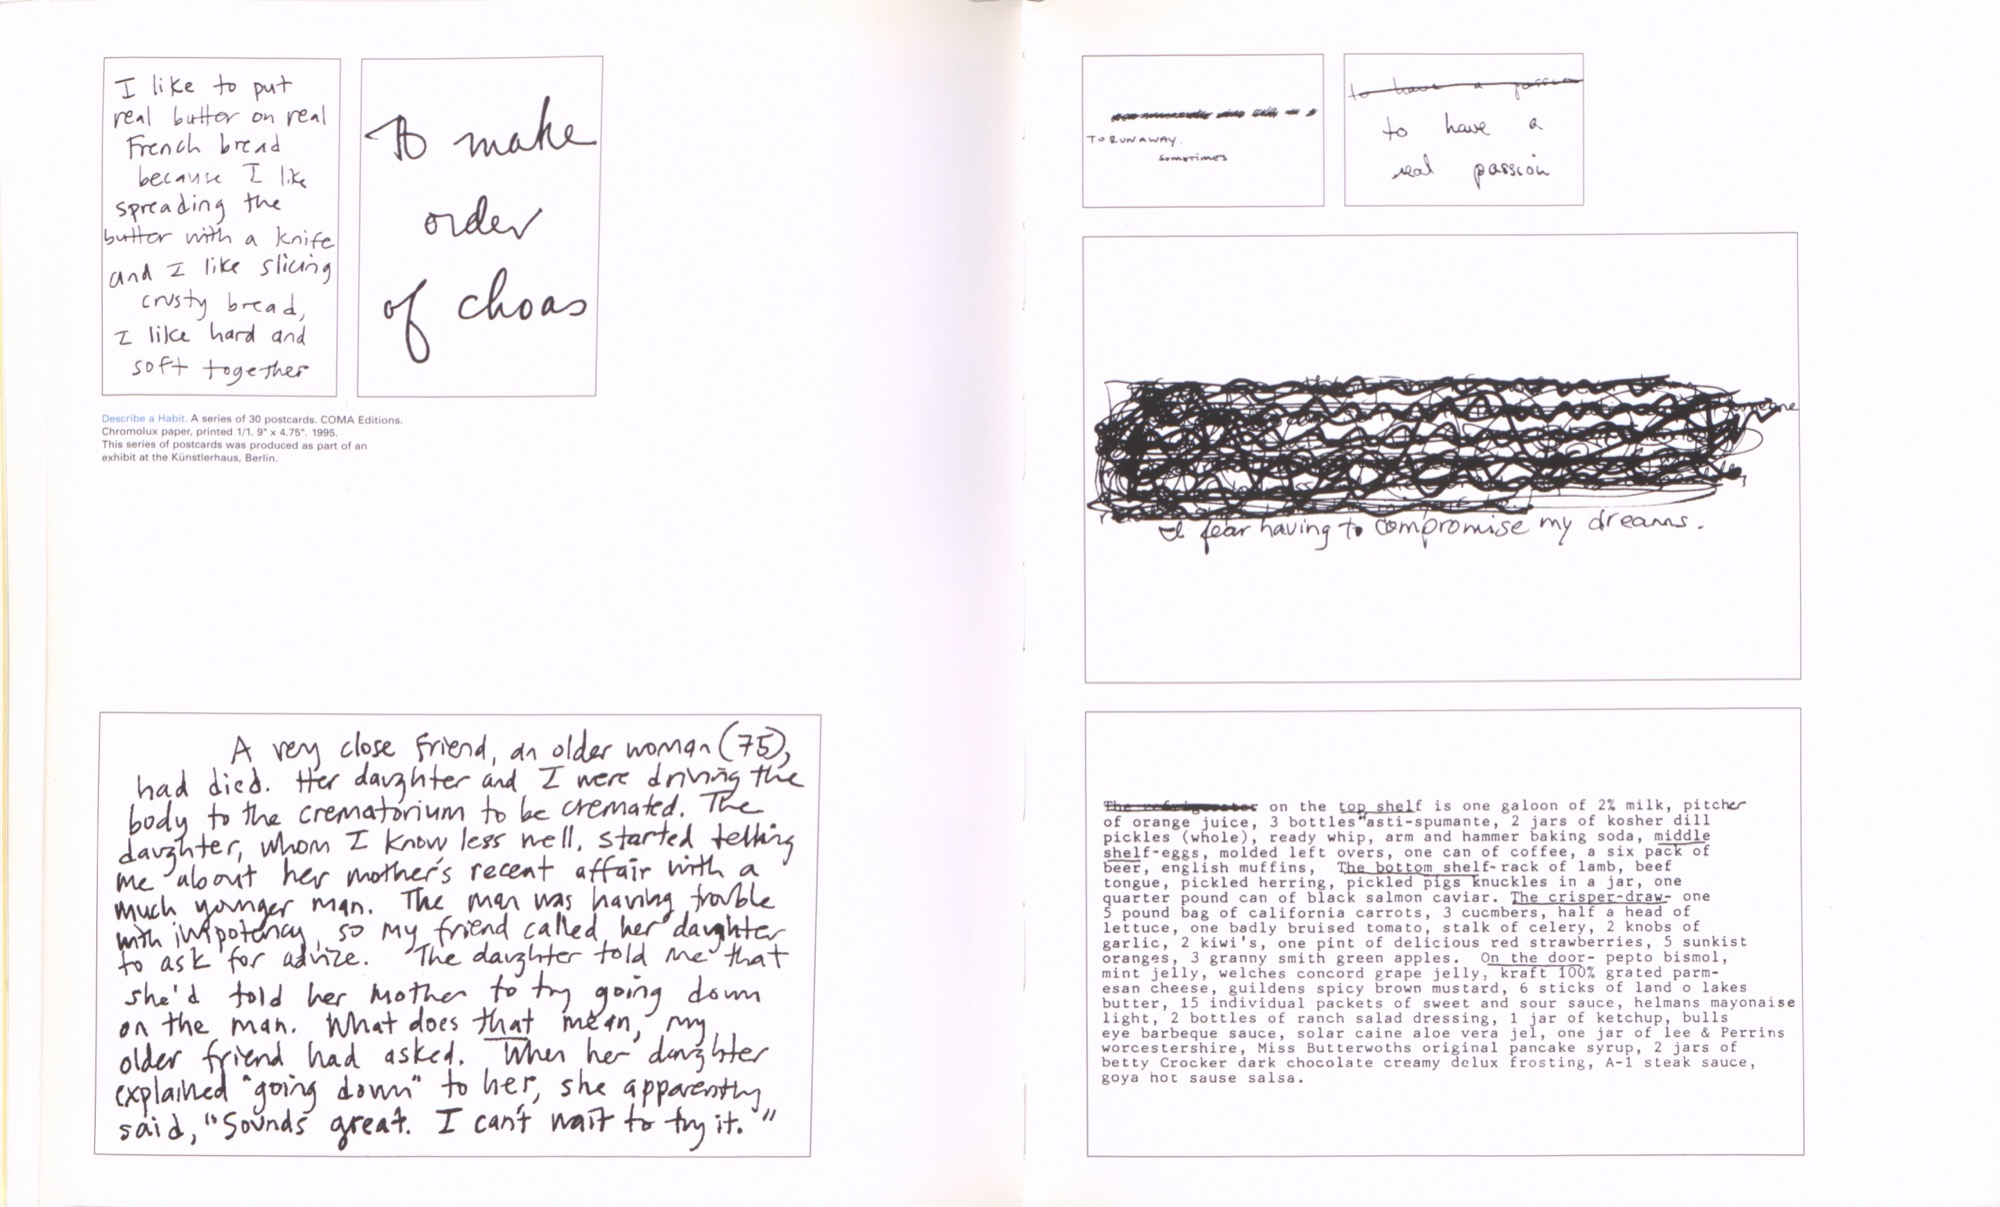 I like to put
real butter on real
French bread
because I like
spreading the
butter with a knife
and I like slicing
crusty bread,
I like hard and
soft together
To make
order
of choas
Describe a Habit. A series of 30 postcards. COMA Editions.
Chromolux paper, printed 1/1. 9" x 4.75". 1995.
This series of postcards was produced as part of an
exhibit at the Künstlerhaus, Berlin.
A very close friend, an older woman (75),
had died. Her daughter and I were driving the
body to the crematorium to be cremated. The
daughter, whom I know less well, started telling
me about her mother's recent affair with a
much younger man. The man was having trouble
with impotency, so my friend called her daughter
to ask for advice. The daughter told me that
she'd told her mother to try going down
on the man. What does that mean, my
older friend had asked. When her daughter
explained "going down" to her, she apparently
said, "Sounds great. I can't wait to try it."
TO RUN AWAY.
sometimes
to have a passion
to have a
real passion
someone
I fear having to compromise my dreams.
The refrigerator on the top shelf is one galoon of 2% milk, pitcher
of orange juice, 3 bottles asti-spumante, 2 jars of kosher dill
pickles (whole), ready whip, arm and hammer baking soda, middle
shelf-eggs, molded left overs, one can of coffee, a six pack of
beer, english muffins, The bottom shelf-rack of lamb, beef
tongue, pickled herring, pickled pigs knuckles in a jar, one
quarter pound can of black salmon caviar. The crisper-draw- one
5 pound bag of california carrots, 3 cucmbers, half a head of
lettuce, one badly bruised tomato, stalk of celery, 2 knobs of
garlic, 2 kiwi's, one pint of delicious red strawberries, 5 sunkist
oranges, 3 granny smith green apples. On the door- pepto bismol,
mint jelly, welches concord grape jelly, kraft 100% grated parm-
esan cheese, guildens spicy brown mustard, 6 sticks of land o lakes
butter, 15 individual packets of sweet and sour sauce, helmans mayonaise
light, 2 bottles of ranch salad dressing, 1 jar of ketchup, bulls
eye barbeque sauce, solar caine aloe vera jel, one jar of lee & Perrins
worcestershire, Miss Butterwoths original pancake syrup, 2 jars of
betty Crocker dark chocolate creamy delux frosting, A-1 steak sauce,
goya hot sause salsa.